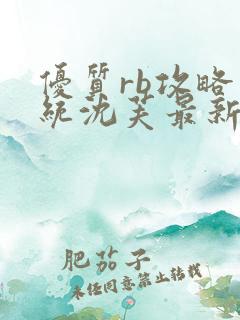 優質rb攻略
統沈芙最新
肥茄子
未经同意禁止转载